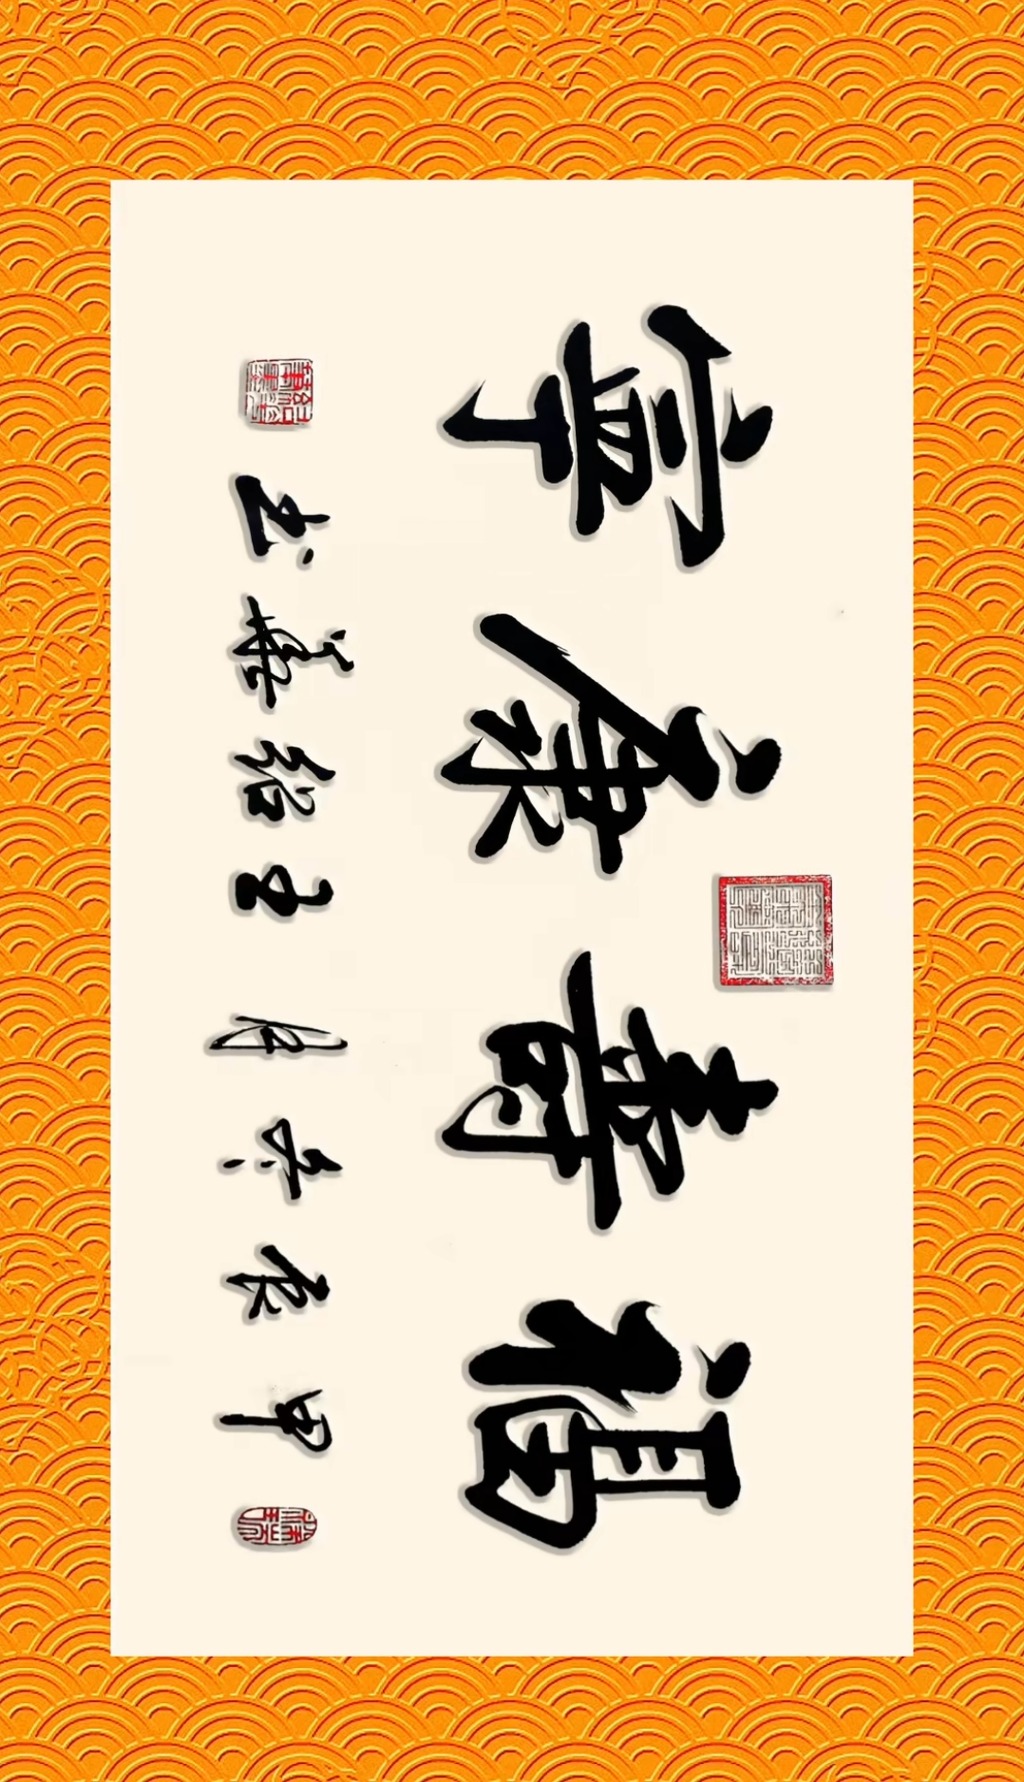 福壽康寧
甲辰冬月王紹華书